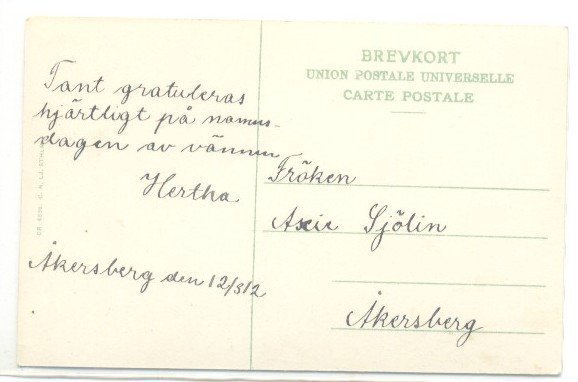 BREVKORT
UNION POSTALE UNIVERSELLE
CARTE POSTALE
Tant gratuleras
hjärtligt på namns-
dagen av vännen
Hertha
Åkersberg den 12/3 12
Fröken
Sjölin
Åkersberg